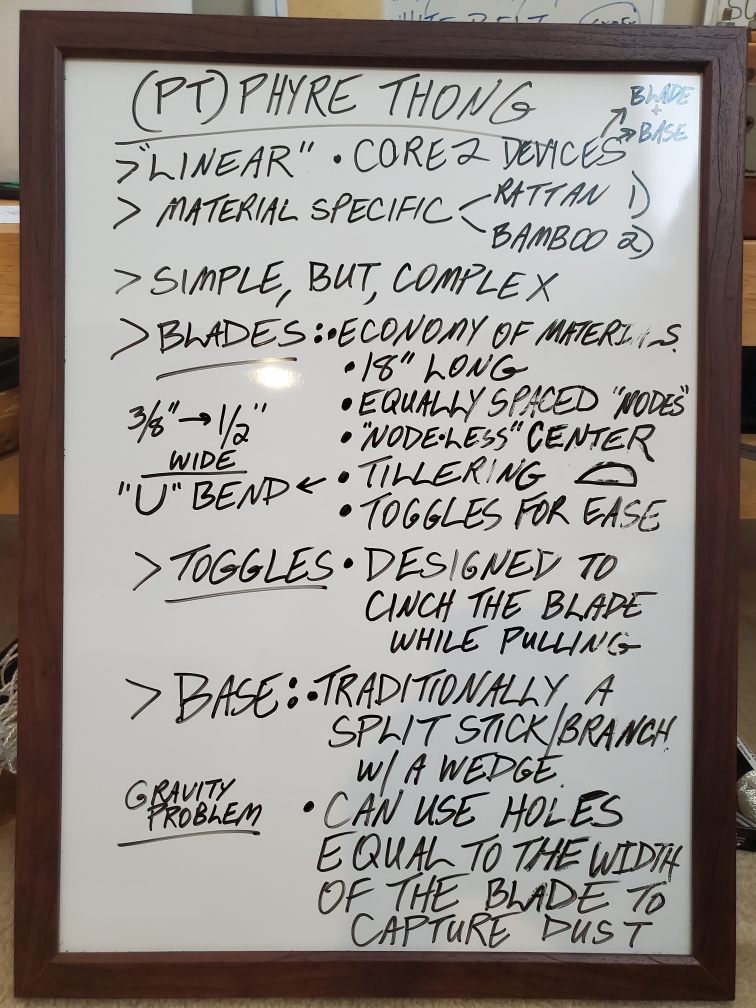 WHITE BELT
(PT) PHYRE THONG
BLADE
+
BASE
> "LINEAR" • CORE 2 DEVICES
> MATERIAL SPECIFIC < RATTAN 1)
BAMBOO 2)
> SIMPLE, BUT, COMPLEX
> BLADES: • ECONOMY OF MATERIALS
• 18" LONG
• EQUALLY SPACED "NODES"
3/8" → 1/2"
• "NODE-LESS" CENTER
WIDE
• TILLERING
"U" BEND ←
• TOGGLES FOR EASE
> TOGGLES • DESIGNED TO
CINCH THE BLADE
WHILE PULLING
> BASE: • TRADITIONALLY A
SPLIT STICK/BRANCH
W/ A WEDGE.
GRAVITY
PROBLEM
• CAN USE HOLES
EQUAL TO THE WIDTH
OF THE BLADE TO
CAPTURE DUST